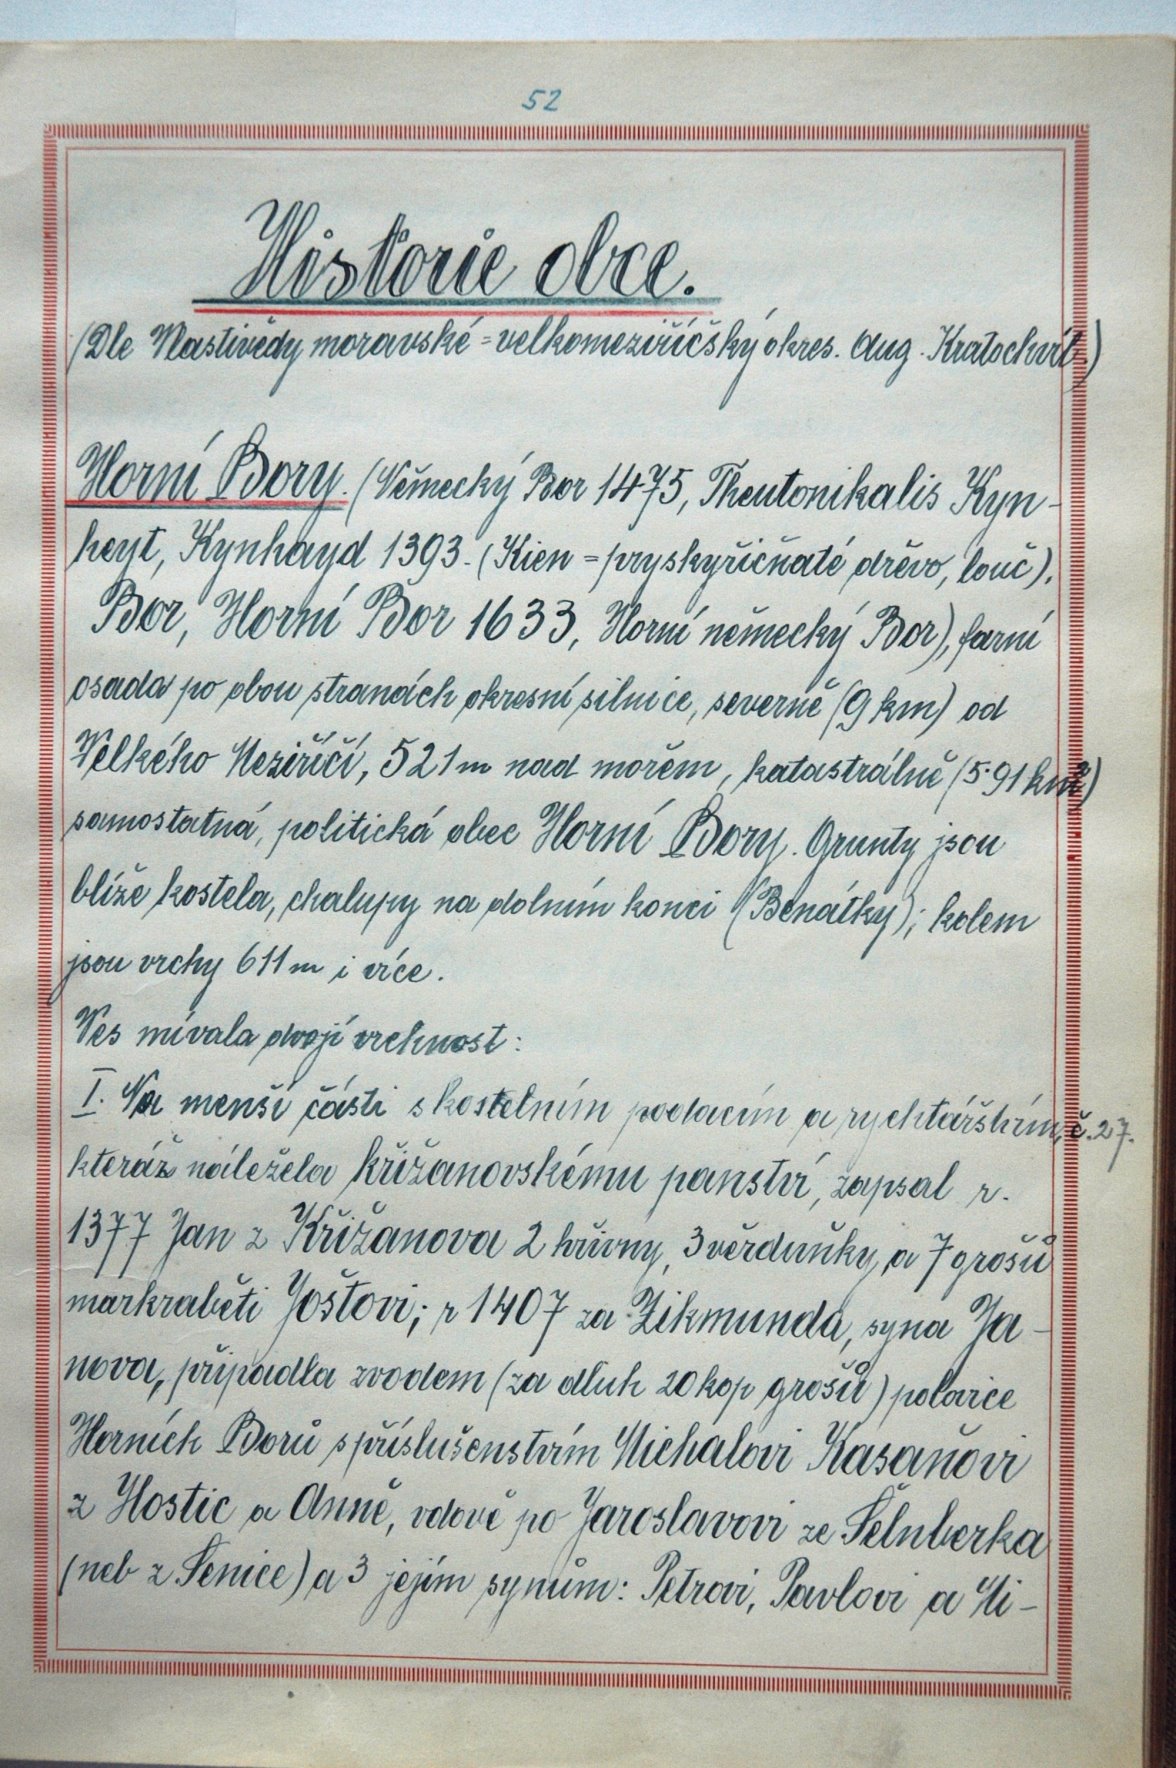 52
Historie obce.
(Dle Vlastivědy moravské = velkomeziříčský okres. Aug. Kratochvíl.)
Horní Bory. (Německý Bor 1475, Theutonikalis Kyn-
heyt, Kynhayd 1393. (Kien = pryskyřičňaté dřěvo, louč).
Bor, Horní Bor 1633, Horní německý Bor), farní
osada po obou stranách okresní silnice, severně (9 km) od
Velkého Meziříčí, 521 m nad mořem, katastrálně (5·91 km²)
samostatná, politická obec Horní Bory. Grunty jsou
blíže kostela, chalupy na dolním konci (Benátky); kolem
jsou vrchy 611 m i více.
Ves mívala dvojí vrchnost:
I. Na menší části s kostelním podacím a rychtářstvím, č. 27.
kteráž náležela křižanovskému panství, zapsal r.
1377 Jan z Křižanova 2 hřivny, 3 věrduňky, a 7 grošů
markraběti Joštovi; r 1407 za Zikmunda, syna Ja-
nova, připadla zvodem (za dluh 20 kop grošů) polovice
Horních Borů s příslušenstvím Michalovi Kasaňovi
z Hostic a Anně, vdově po Jaroslavovi ze Šelnberka
(neb z Šenice) a 3 jejím synům: Petrovi, Pavlovi a Mi-